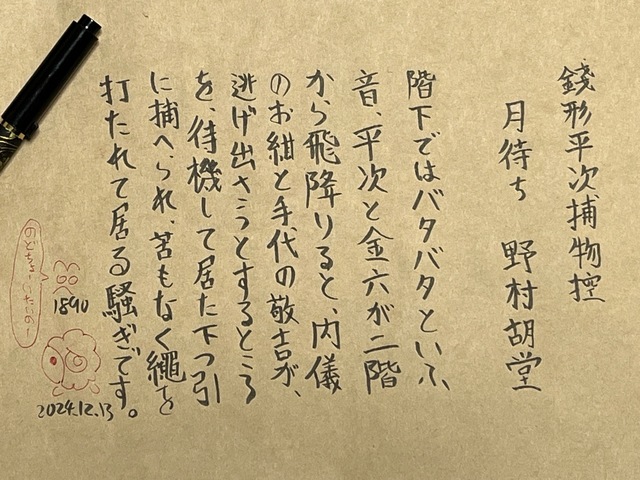 銭形平次捕物控
月待ち 野村胡堂
階下ではバタバタといふ
音、平次と金六が二階
から飛降りると、内儀
のお紺と手代の敬吉が、
逃げ出さうとするところ
を、待機して居た下つ引
に捕へられ、苦もなく縄を
打たれて居る騒ぎです。
のどちょーいたいの
1890
2024.12.13